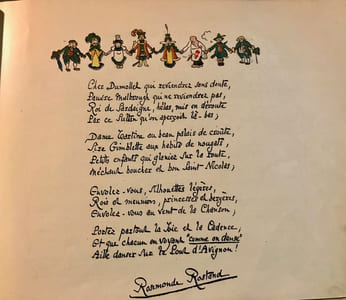 Cher Dumollet qui reviendrez sans doute,
Pauvre Malbrough qui ne reviendrez pas,
Roi de Sardaigne, hélas, mis en déroute
Par ce Sultan qu'on aperçoit là-bas;
Dame Tartine au beau palais de croûte,
Sire Gimblette aux habits de nougats,
Petits enfants qui glaniez sur la route,
Méchant boucher et bon Saint Nicolas;
Envolez-vous, silhouettes légères,
Rois et meuniers, princesses et bergères,
Envolez-vous au vent de la Chanson;
Portez partout la Joie et la Cadence,
Et que chacun en voyant "comme on danse"
Aille danser sur le Pont d'Avignon!
Rosemonde Rostand